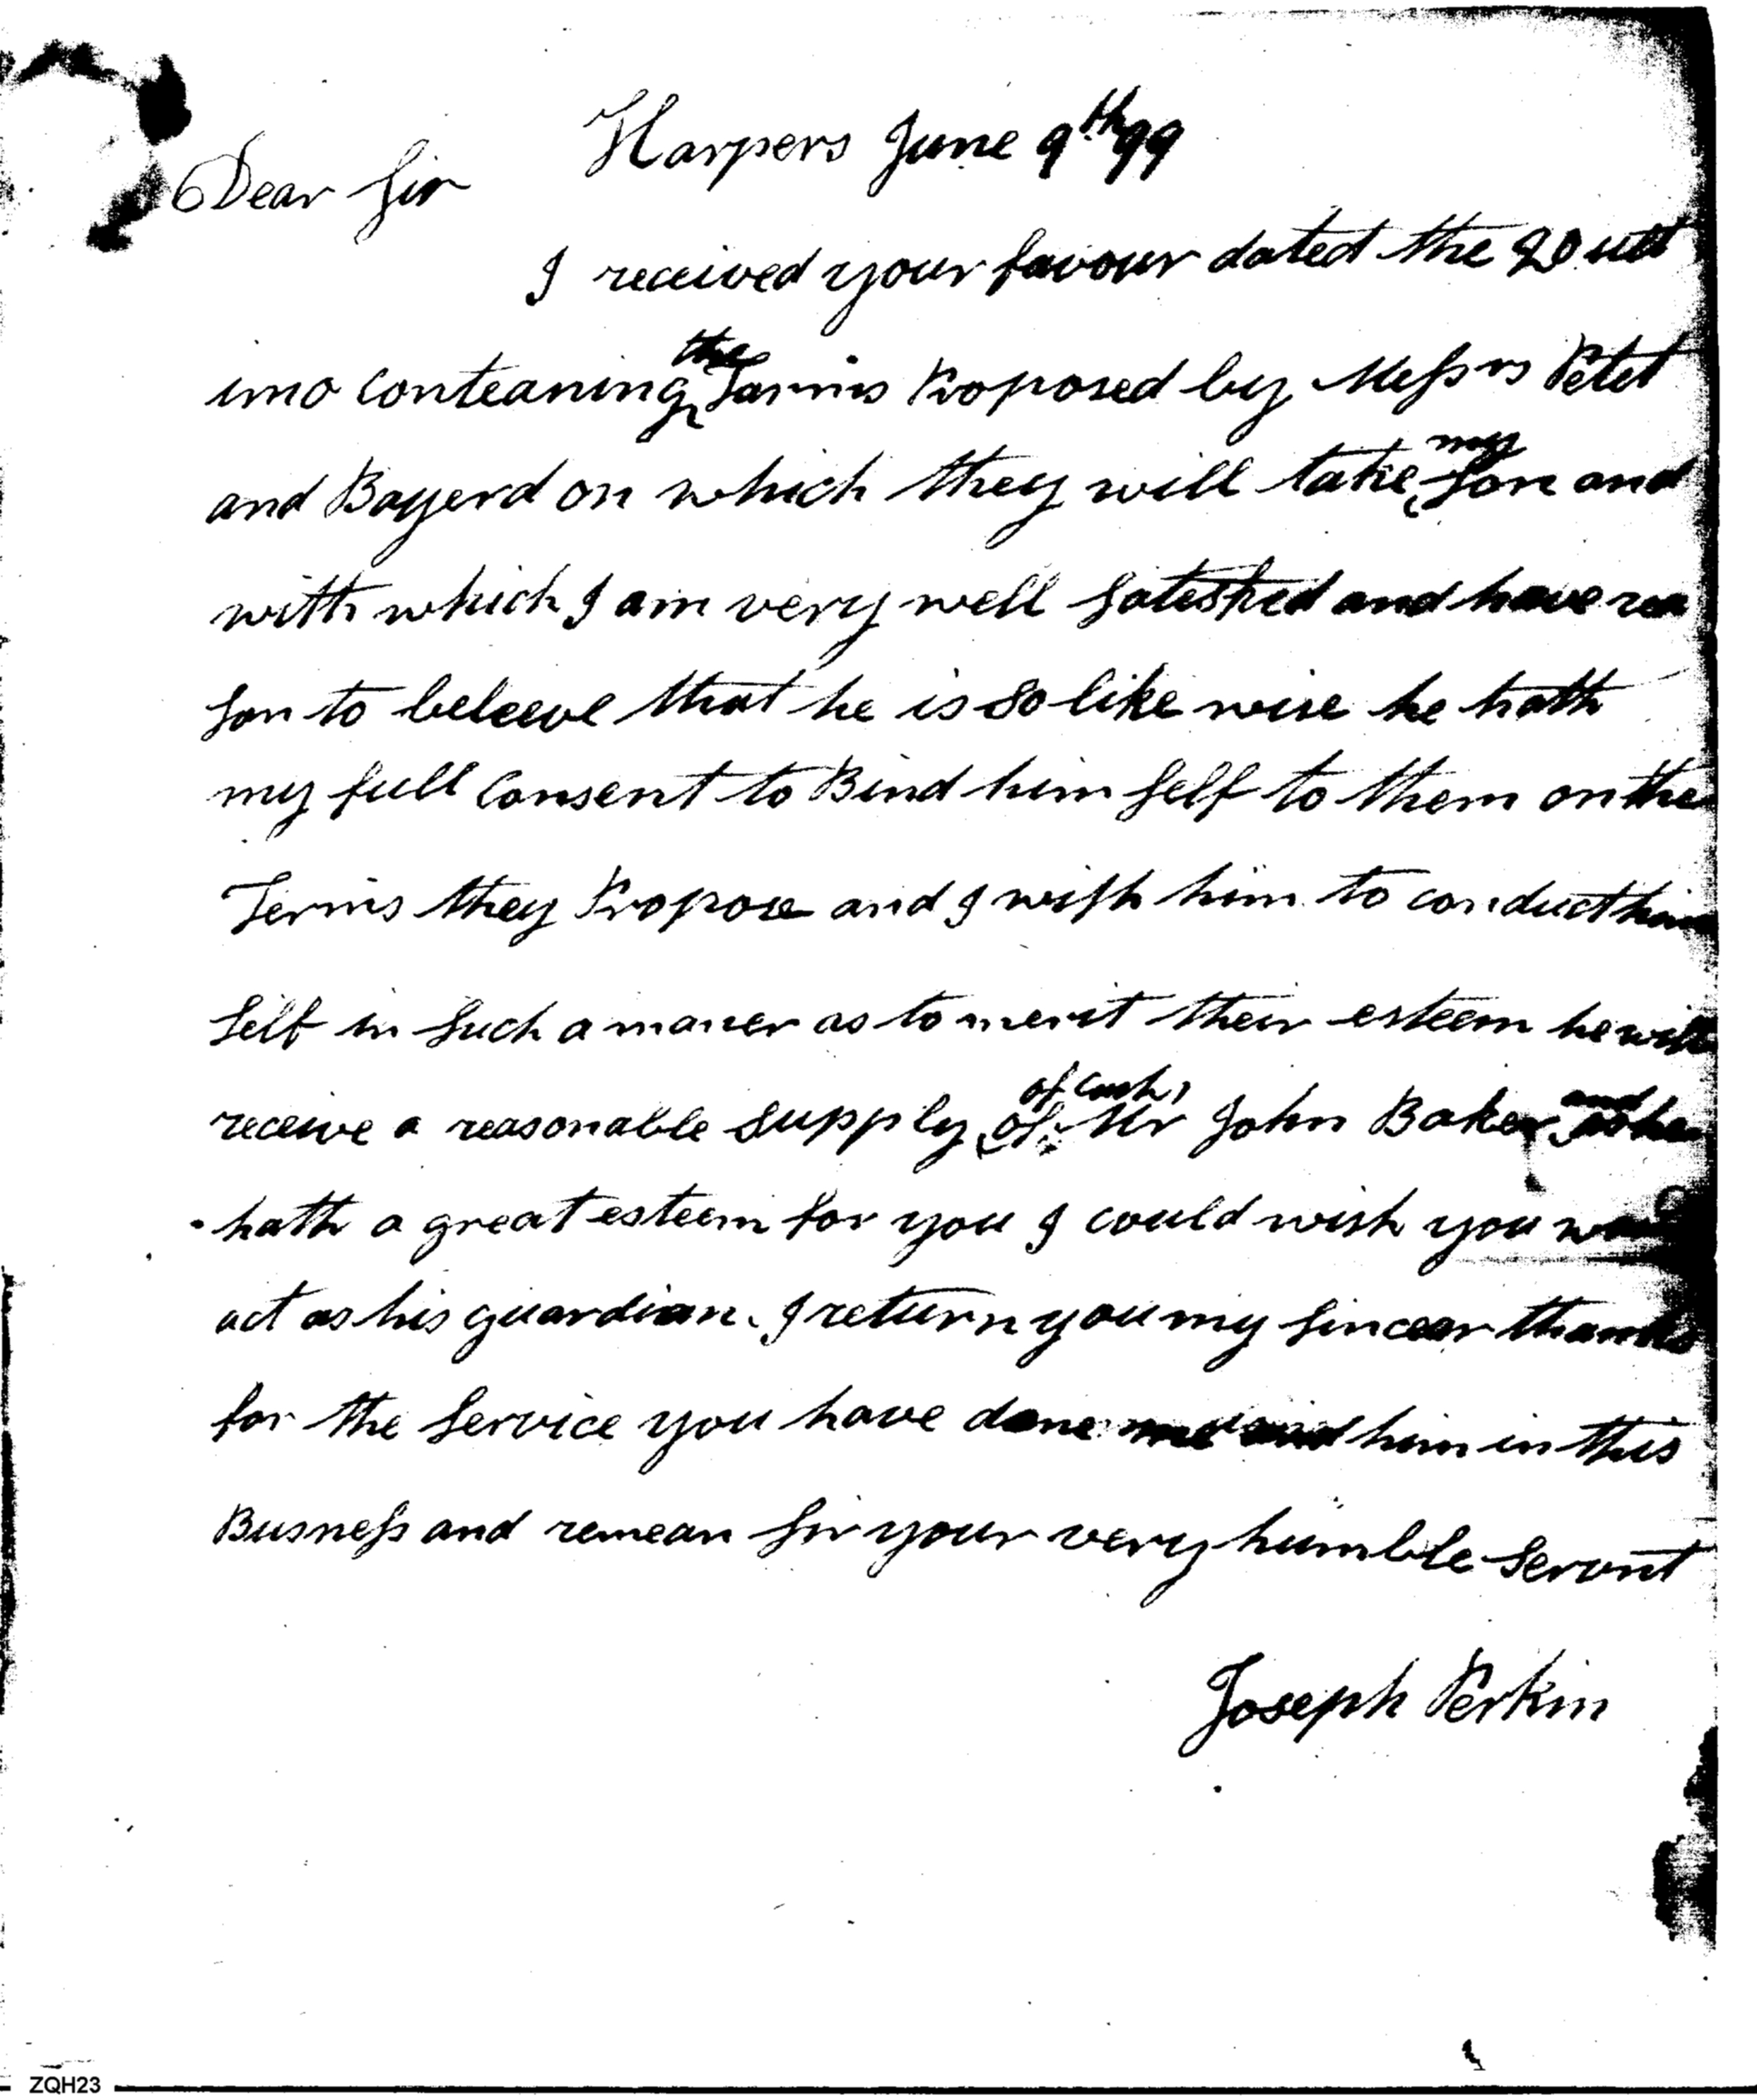 Harpers June 9th 99
Dear Sir
I received your favour dated the 20 ult
imo Conteaning the Tarms Proposed by Messrs Petet
and Bayerd on which they will take my Son and
with which I am very well Satesfied and have rea
Son to beleeve that he is So like wise he hath
my full Consent to Bind him Self to them on the
Terms they Propose and I wish him to conduct him
Self in Such a maner as to merit their esteem he will
receive a reasonable Supply of Cash, of Mr John Baker and as he
hath a great esteem for you I could wish you
act as his guardian. I return you my Sincear thanks
for the Service you have done me and him in this
Busness and remean Sir your very humble Servnt
Joseph Perkin
ZQH23